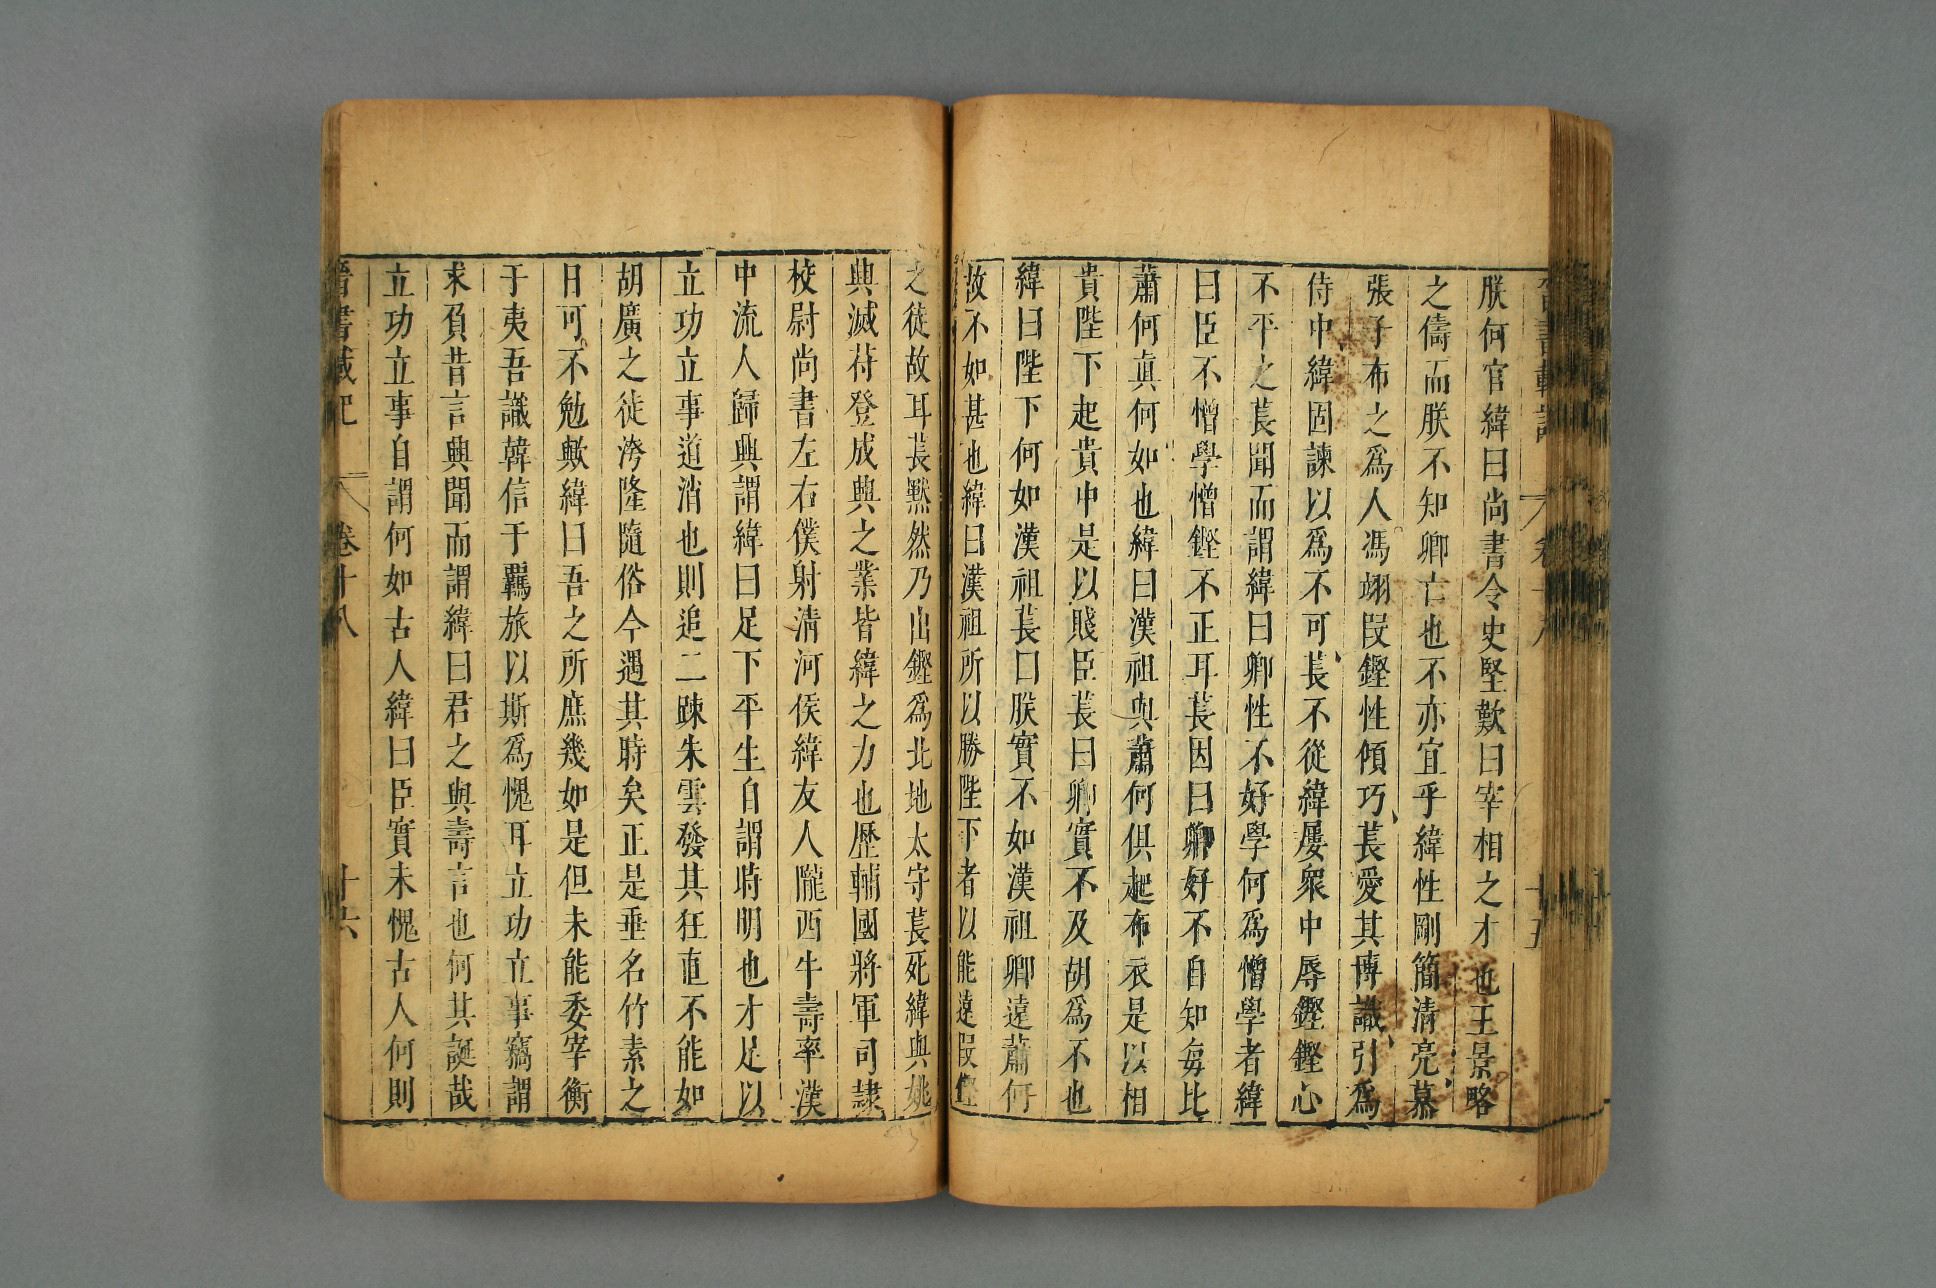 晉書載記 卷十八 十五
朕何官緯曰尚書令史堅歎曰宰相之才也王景略
之儔而朕不知卿亡也不亦宜乎緯性剛簡清亮慕
張子布之爲人馮翊段鏗性傾巧萇愛其博識引爲
侍中緯固諫以爲不可萇不從緯屢衆中辱鏗鏗心
不平之萇聞而謂緯曰卿性不好學何爲憎學者緯
曰臣不憎學憎鏗不正耳萇因曰卿好不自知每比
蕭何真何如也緯曰漢祖與蕭何俱起布衣是以相
貴陛下起貴中是以賤臣萇曰卿實不及胡爲不也
緯曰陛下何如漢祖萇曰朕實不如漢祖卿遠蕭何
故不如甚也緯曰漢祖所以勝陛下者以能遠段鏗
之徒故耳萇默然乃出鏗爲北地太守萇死緯與姚
興滅苻登成興之業皆緯之力也歷輔國將軍司隸
校尉尚書左右僕射清河侯緯友人隴西牛壽率漢
中流人歸興謂緯曰足下平生自謂時明也才足以
立功立事道消也則追二疎朱雲發其狂直不能如
胡廣之徒洿隆隨俗今遇其時矣正是垂名竹素之
日可不勉歟緯曰吾之所庶幾如是但未能委宰衡
于夷吾識韓信于羈旅以斯爲愧耳立功立事竊謂
未負昔言興聞而謂緯曰君之與壽言也何其誕哉
立功立事自謂何如古人緯曰臣實未愧古人何則
晉書載記 卷十八 十六